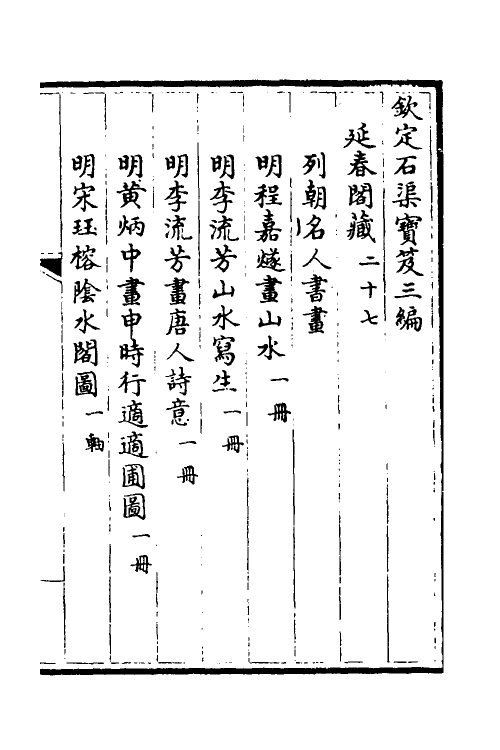 欽定石渠寶笈三編
延春閣藏二十七
列朝名人書畫
明程嘉燧畫山水一冊
明李流芳山水寫生一冊
明李流芳畫唐人詩意一冊
明黃炳中畫申時行適適圃圖一冊
明宋珏榕陰水閣圖一軸